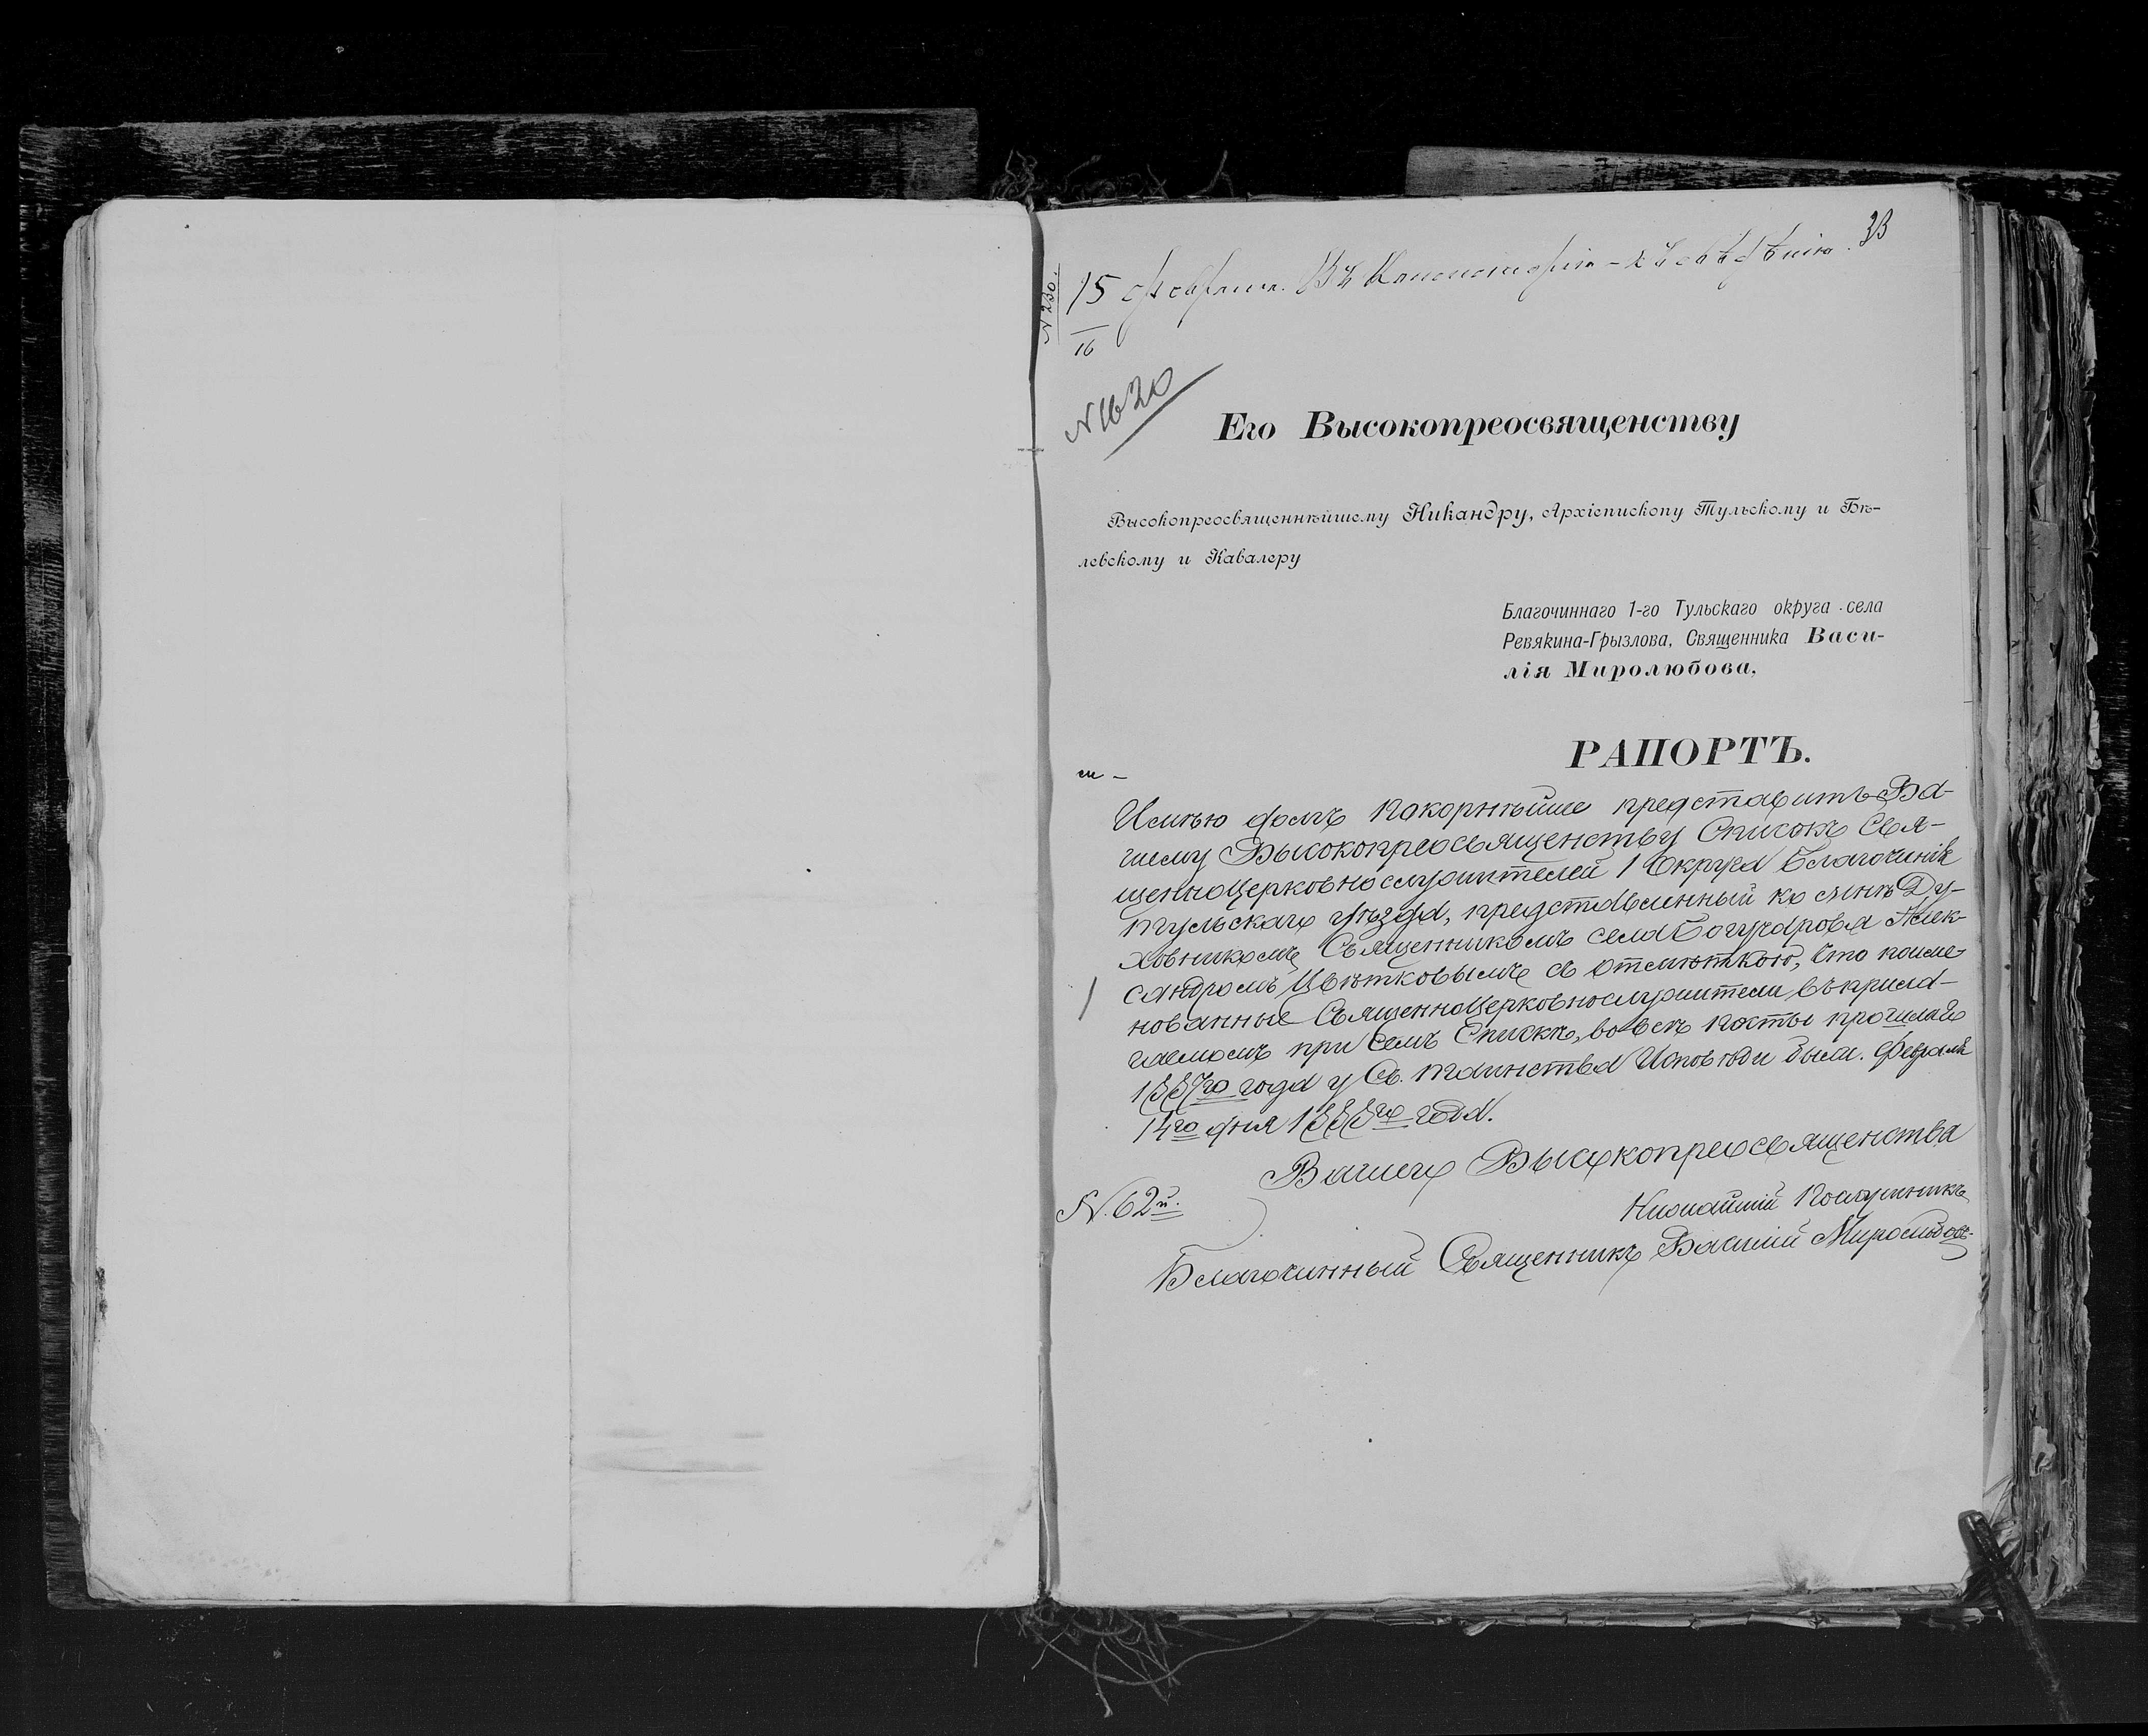 33
N 230.
15 февраля. Въ Консисторію – къ свѣдѣнію.
16
N 1620
Его Высокопреосвященству
Высокопреосвященнѣйшему Никандру, Архіепископу Тульскому и Бѣ-
левскому и Кавалеру
Благочиннаго 1-го Тульскаго округа села
Ревякина-Грызлова, Священника Васи-
лія Миролюбова,
РАПОРТЪ.
Имѣю долгъ покорнѣйше представить Ва-
шему Высокопреосвященству Списокъ Свя-
щенноцерковнослужителей 1 Округа Благочинія
Тульскаго уѣзда, представленный ко мнѣ Ду-
ховникомъ Священникомъ села Богучарова Алек-
сандромъ Цвѣтковымъ съ отмѣткою, что поиме-
нованные Священноцерковнослужители въ прила-
гаемомъ при семъ Спискѣ, во всѣ посты прошлаго
1887го года у Св. таинства Исповѣди были. Февраля
14го дня 1888го года.
Вашего Высокопреосвященства
N. 62й.
Нижайшій Послушникъ
Благочинный Священникъ Василій Миролюбовъ